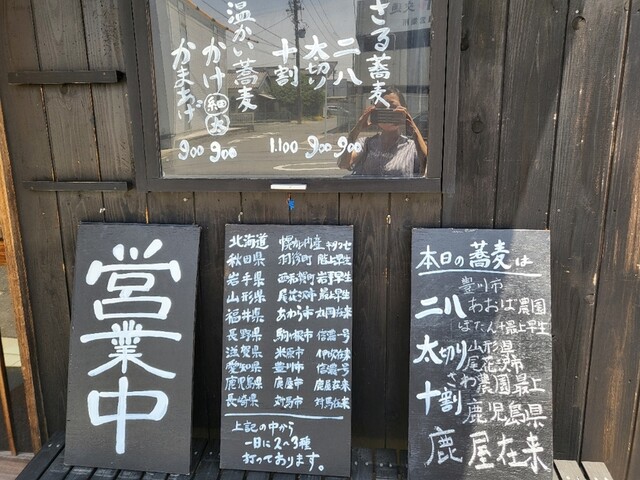 ざる蕎麦
二八 900
太切り 900
十割 1.100
温かい蕎麦
かけ 細 太 900
かまあげ 900
営業中
北海道 幌加内産 キタワセ
秋田県 羽後町 階上早生
岩手県 西和賀町 岩手早生
山形県 尾花沢市 最上早生
福井県 あわら市 丸岡在来
長野県 駒ヶ根市 信濃一号
滋賀県 米原市 伊吹在来
愛知県 豊川市 信濃一号
鹿児島県 鹿屋市 鹿屋在来
長崎県 対馬市 対馬在来
上記の中から
一日に2〜3種
打っております。
本日の蕎麦は
豊川市
二八 あおば農園
ぼたん+最上早生
太切り 山形県
尾花沢市
さわ農園 最上
十割 鹿児島県
鹿屋在来